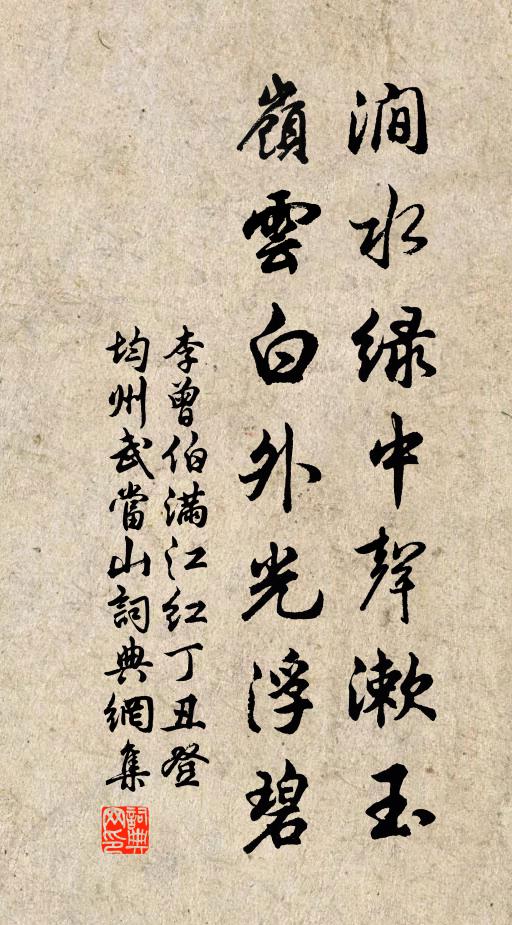 澗水緑中聲漱玉
嶺雲白外光浮碧
李曾伯滿江紅丁丑登
均州武當山詞典網集
詞典網印